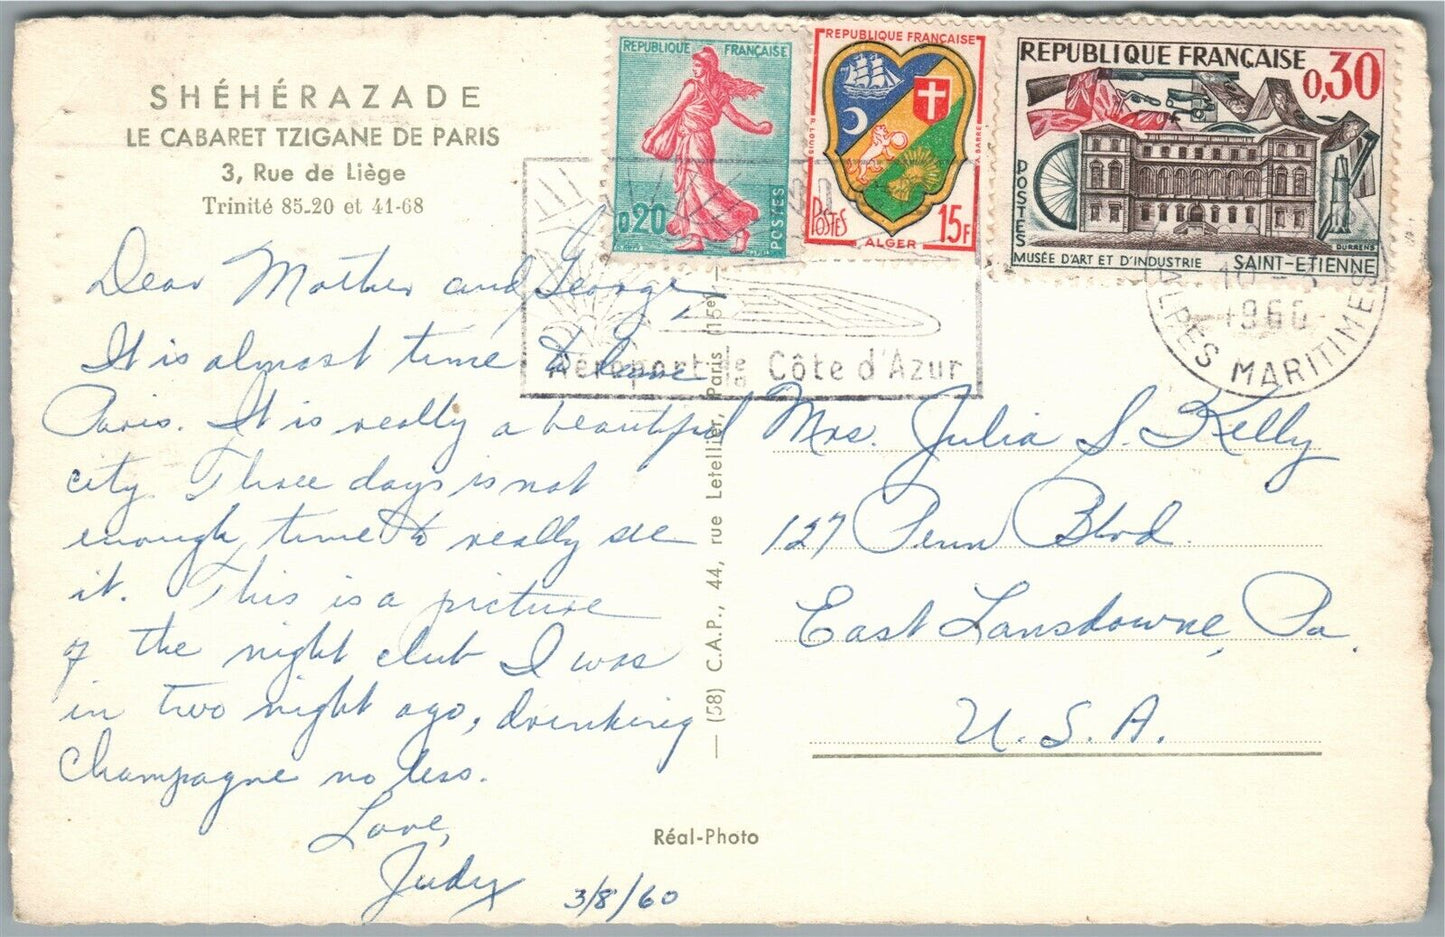 SHÉHÉRAZADE
LE CABARET TZIGANE DE PARIS
3, Rue de Liège
Trinité 85-20 et 41-68
Dear Mother and George,
It is almost time to leave
Paris. It is really a beautiful
city. Three days is not
enough time to really see
it. This is a picture
of the night club I was
in two night ago, drinking
Champagne no less.
Love,
Judy
3/8/60
(58) C.A.P., 44, rue Letellier, Paris (15e)
Réal-Photo
REPUBLIQUE FRANÇAISE
0,20
POSTES
REPUBLIQUE FRANÇAISE
POSTES
15F
ALGER
REPUBLIQUE FRANÇAISE
0,30
POSTES
DURRENS
MUSÉE D'ART ET D'INDUSTRIE SAINT-ETIENNE
Aéroport de Côte d'Azur
1960
ALPES MARITIMES
Mrs. Julia S. Kelly
127 Penn Blvd.
East Lansdowne, Pa.
U.S.A.